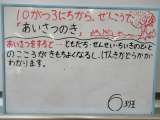 10がつ3にちから、ぜんこうで
「あいさつのき」
あいさつをすると…ともだち・せんせい・ちいきのひと
のこころがきもちよくなるし、げんきかどうかが
わかります。